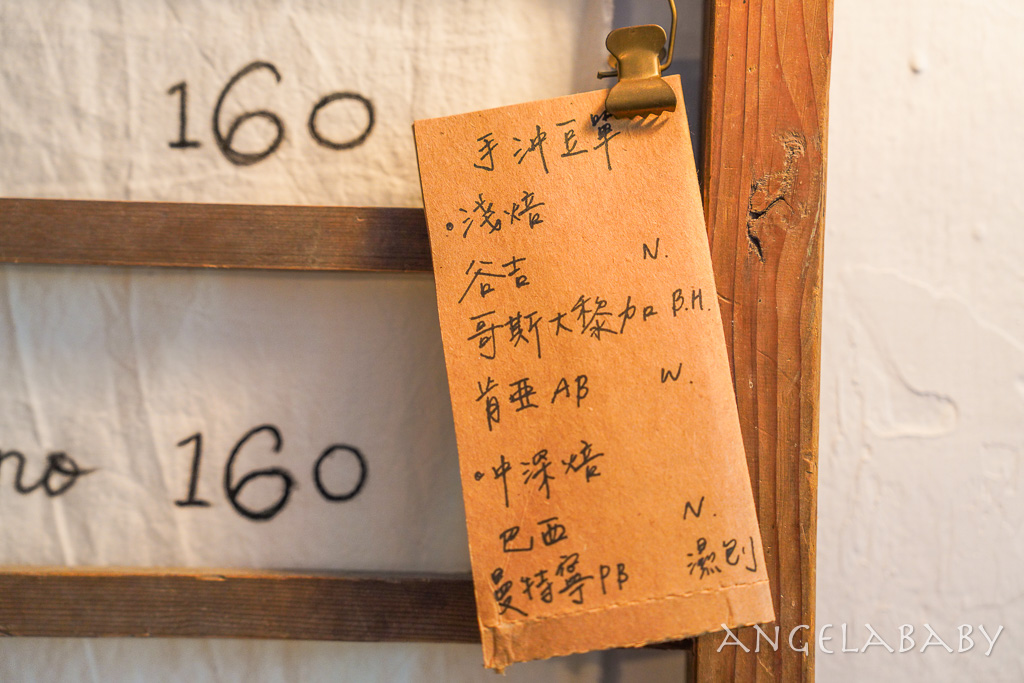 160
手沖豆單
•淺焙
谷吉 N.
哥斯大黎加 B.H.
肯亞 AB W.
•中深焙
巴西 N.
曼特寧 PB 濕刨
no 160
ANGELABABY